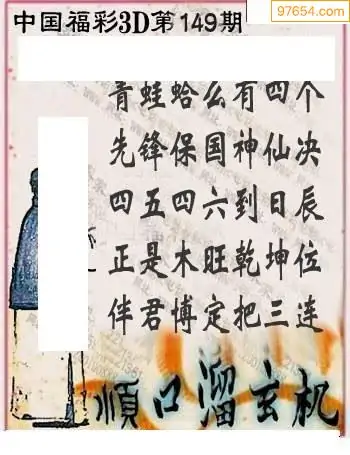 97654.com
中国福彩3D第149期
青蛙蛤么有四个
先锋保国神仙决
四五四六到日辰
正是木旺乾坤位
伴君博定把三连
順口溜玄机